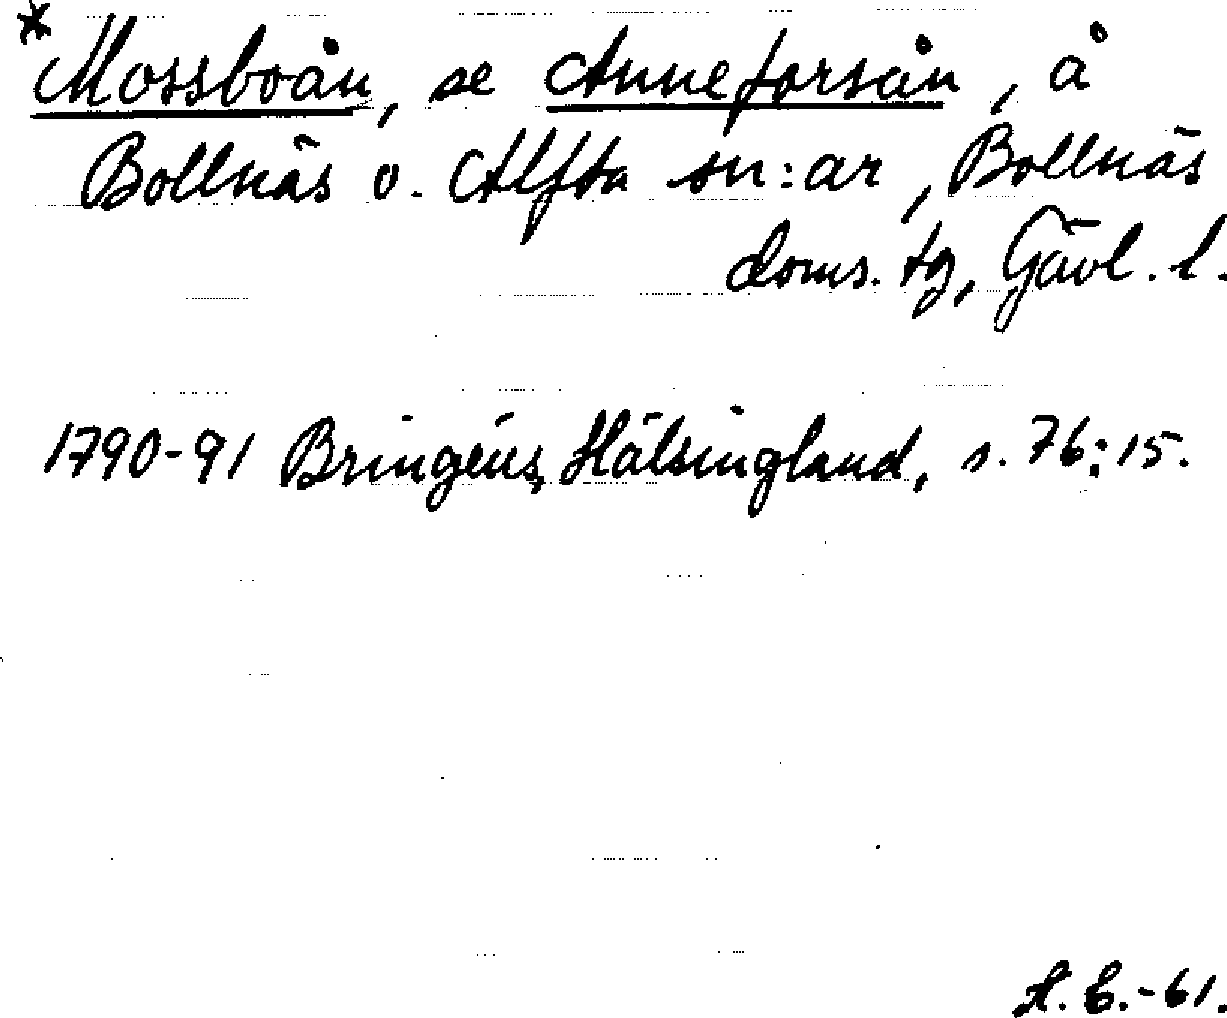 * Mossboån, se Anneforsån, å
Bollnäs o. Alfta sn:ar, Bollnäs
doms. tg, Gävl. l.
1790-91 Bringéus, Hälsingland, s. 76:15.
A. E. -61.